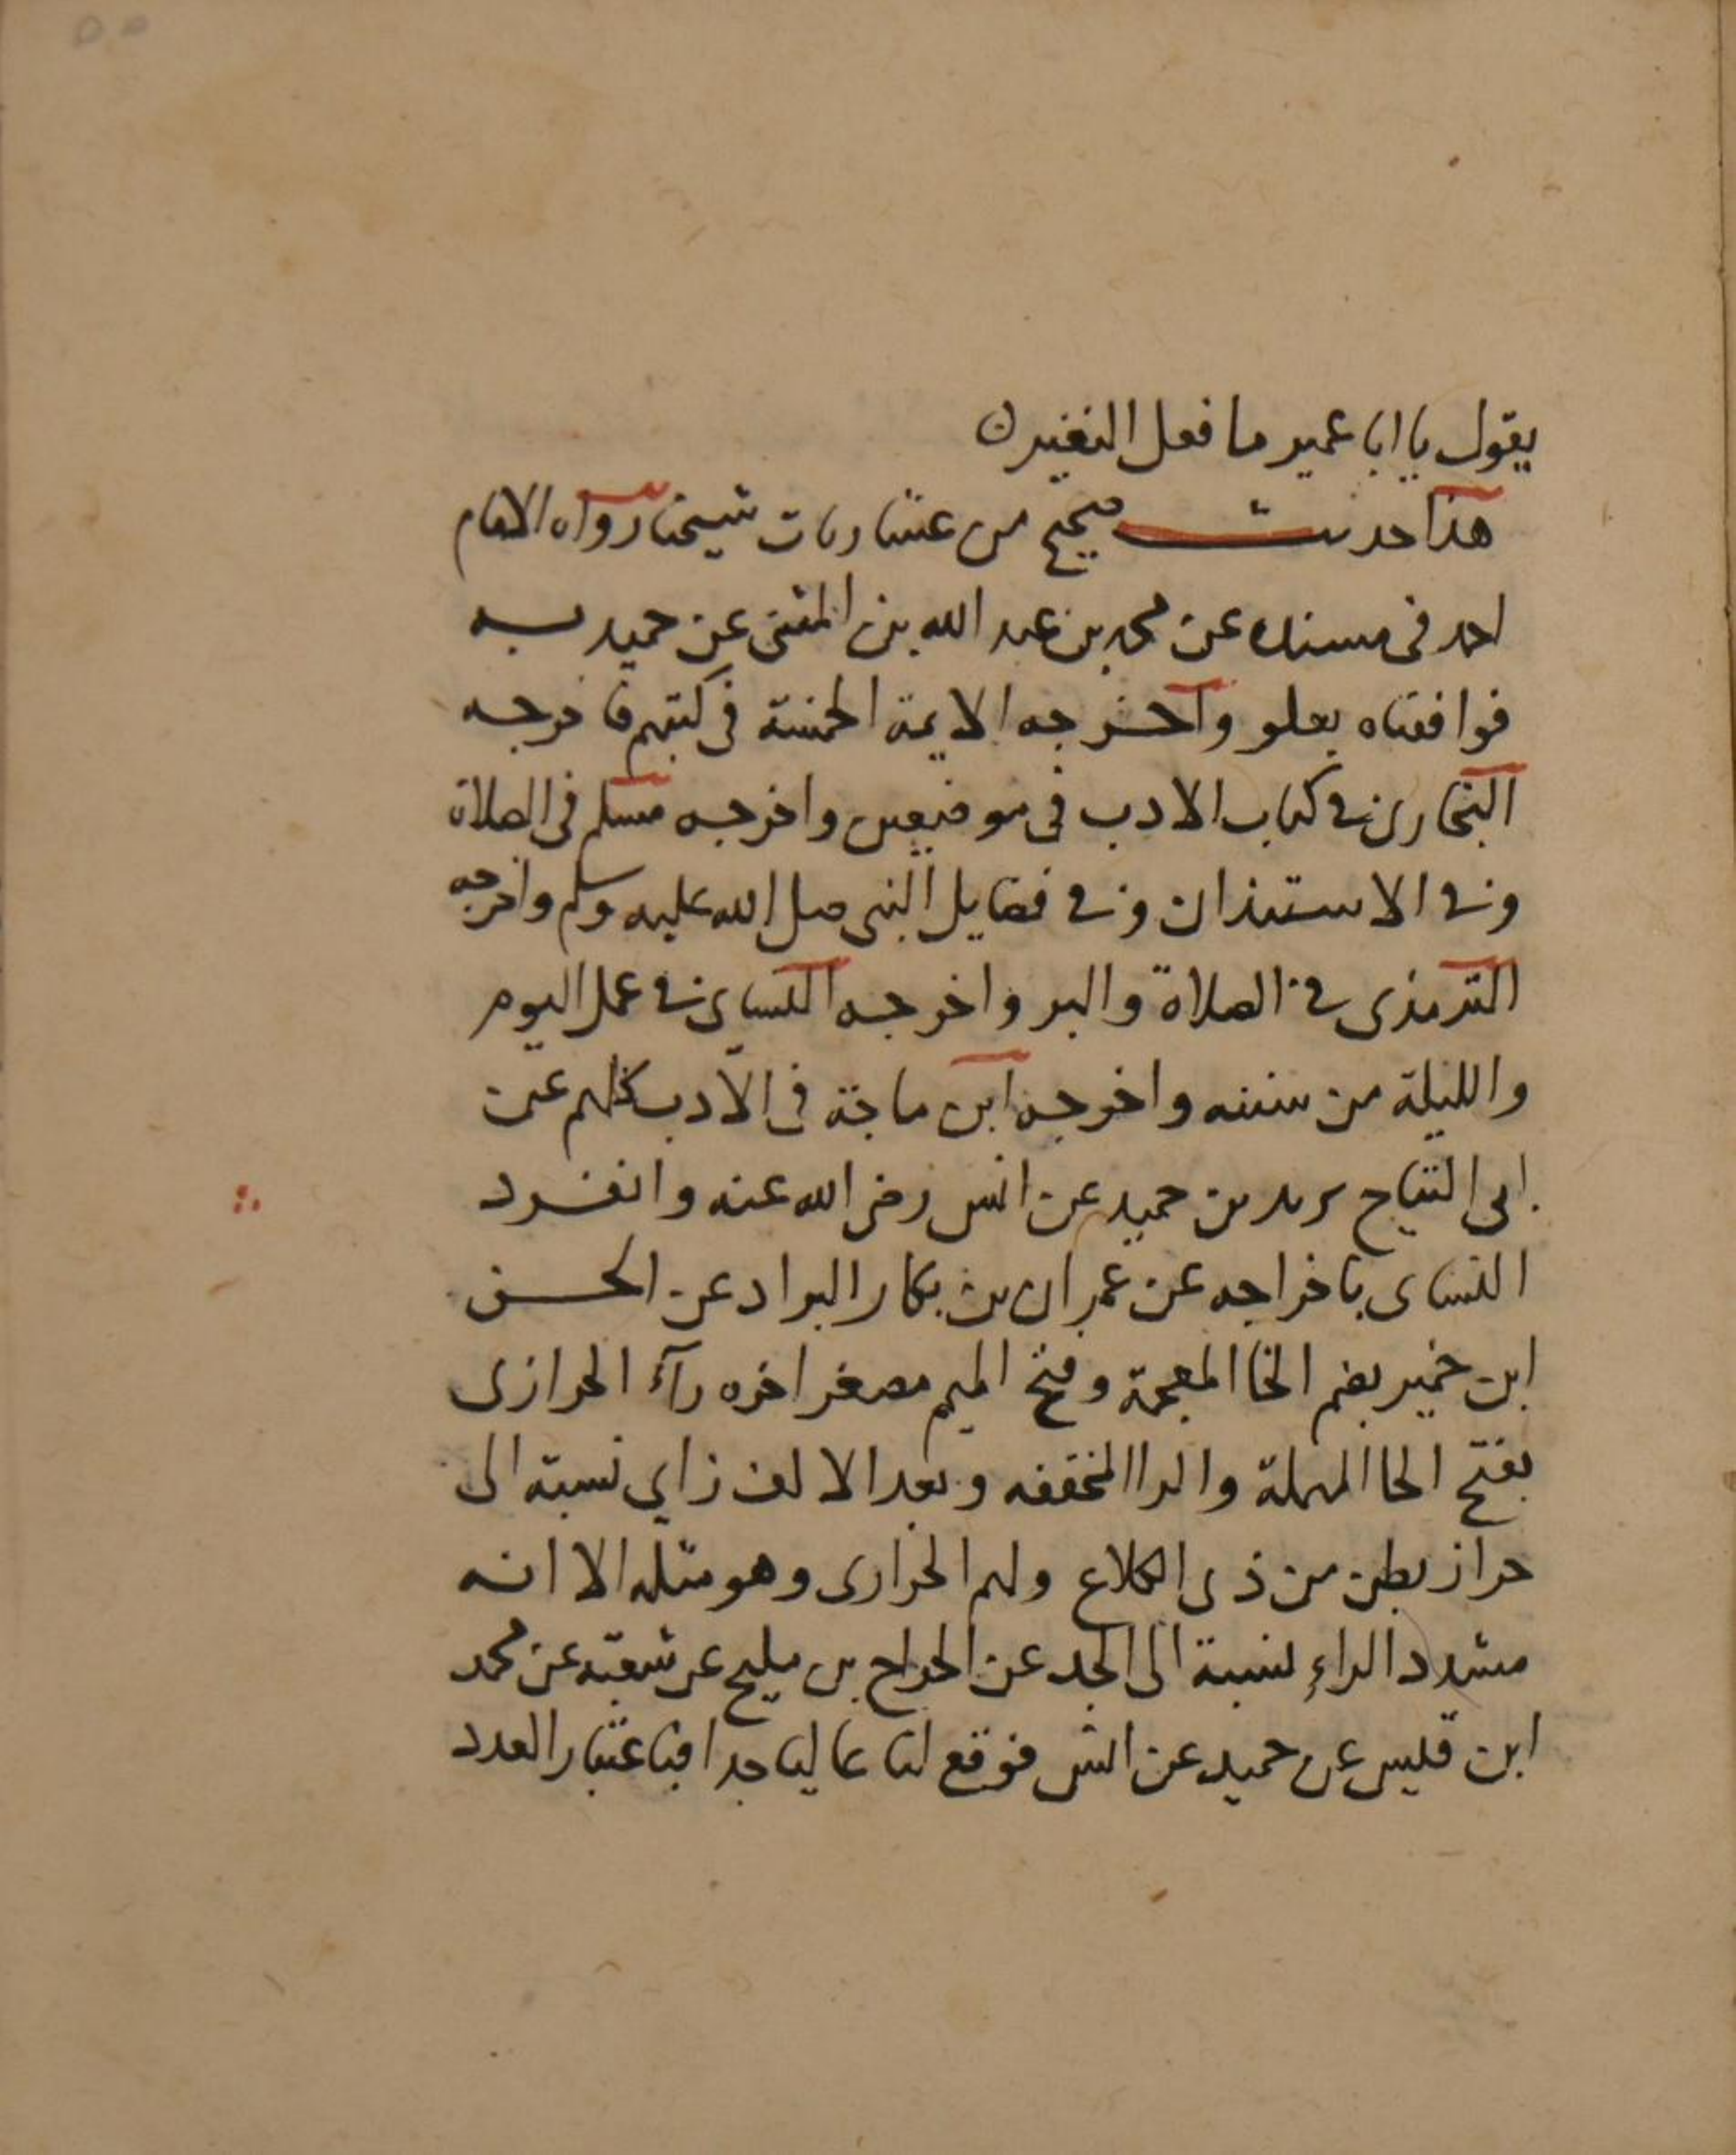 يقول يا ابا عمير ما فعل النغير ن
هذا حديث صحيح من عشاريات شيخنا رواه الامام
احمد فى مسنده عن محمد بن عبد الله بن المثنى عن حميد به
فوافقناه بعلو واخرجه الايمة الخمسة في كتبهم فاخرجه
البخارى في كتاب الادب في موضعين واخرجه مسلم في الصلاة
وفي الاستيذان وفي فضايل النبي صلى الله عليه وسلم واخرجه
الترمذى في الصلاة والبر واخرجه النساي في عمل اليوم
والليلة من سننه واخرجه ابن ماجة في الادب كلهم عن
ابى التياح يزيد بن حميد عن انس رضى الله عنه وانفرد
النساى باخراجه عن عمران بن بكار البراد عن الحسن
ابن خمير بضم الخا المعجمة وفتح الميم مصغر اخره رآء الحرازى
بفتح الحا المهملة والرا المخففه وبعد الالف زاي نسبة الى
حراز بطن من ذى الكلاع ولهم الخرازى وهو مثله الا انه
مشدد الراء نسبة الى الجد عن الجراح بن مليح عن شعبه عن محمد
ابن قيس عن حميد عن انس فوقع لنا عاليا جدا فباعتبار العدد